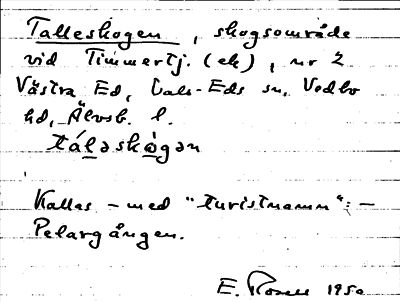 Talleskogen, skogsområde
vid Timmertj. (ek), nr 2
Västra Ed, Dals-Eds sn, Vedbo
hd, Älvsb. l.
táləskògən
Kallas - med "turistnamn": -
Pelargången.
E. Rosell 1950